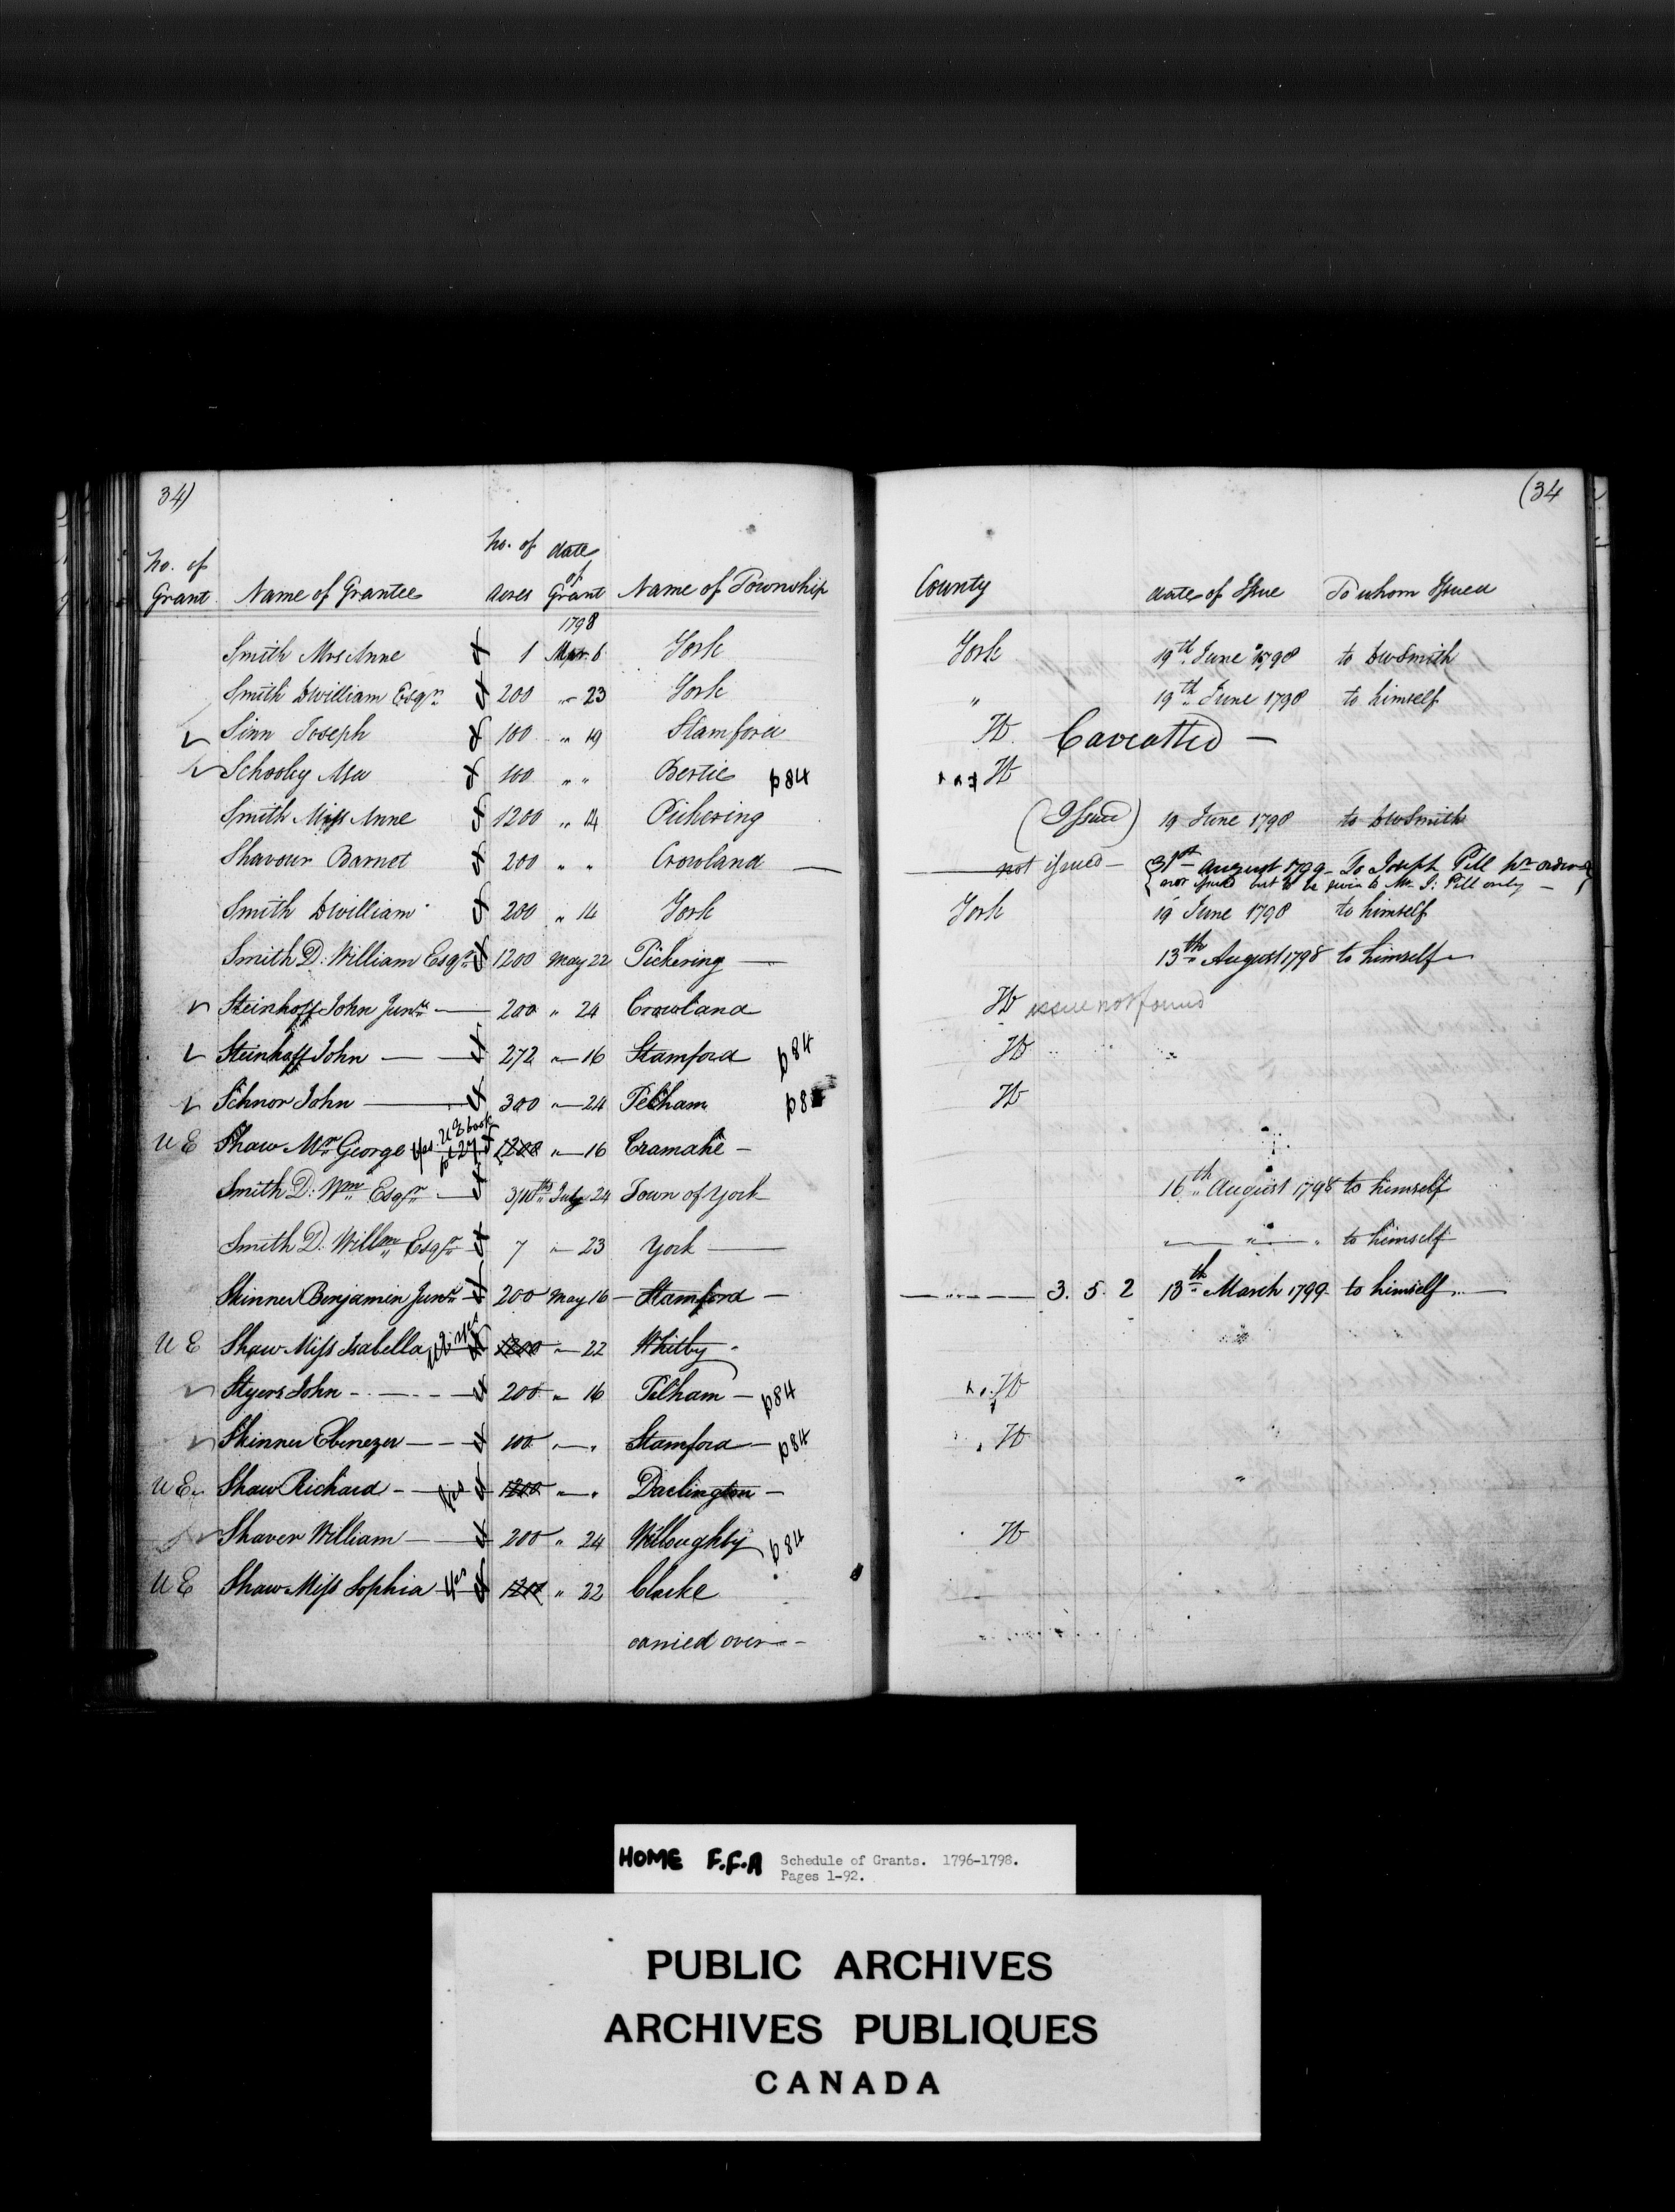 34) (34
No. of Grant Name of Grantee No. of Acres date of Grant Name of Township County date of Issue To whom Issued
1798
Smith Mrs Anne 1 Mar 6 York York 19th June 1798 to DWSmith
Smith DWilliam Esqr 200 " 23 York " 19th June 1798 to himself
Sinn Joseph 100 " 19 Stamford Caveatted —
Schooley Asa 100 " " Bertie p84
Smith Miss Anne 1200 " 14 Pickering (Issued) 19 June 1798 to DWSmith
Shavour Barnot 200 " " Crowland — not issued — 31st August 1799 - To Joseph Pell pr order
not issued but to be given to Mr J: Pell only —
Smith DWilliam 200 " 14 York York 19 June 1798 to himself
Smith D: William Esqr 1200 May 22 Pickering — 13th August 1798 to himself
Steinhoff John Junr — 200 " 24 Crowland issue not found
Steinhoff John — 272 " 16 Stamford p84
Schnor John — 300 " 24 Pelham p8
U E Shaw Mr George yes U E book 1200 " 16 Cramahe —
Smith D: Wm Esqr — 3/10ths July 24 Town of York 16th August 1798 to himself
Smith D: Willm Esqr 7 " 23 York — " " to himself
Skinner Benjamin Junr 200 May 16 Stamford — 3. 5. 2 13th March 1799 to himself
U E Shaw Miss Isabella yes 1200 " 22 Whitby
Styers John — 200 " 16 Pelham — p84
Skinner Ebenezer — 100 " " Stamford — p84
U E Shaw Richard — yes 1200 " " Darlington —
Shaver William — 200 " 24 Willoughby p84
U E Shaw Miss Sophia yes 1200 " 22 Clarke
carried over —
HOME F.F.A Schedule of Grants. 1796-1798.
Pages 1-92.
PUBLIC ARCHIVES
ARCHIVES PUBLIQUES
CANADA